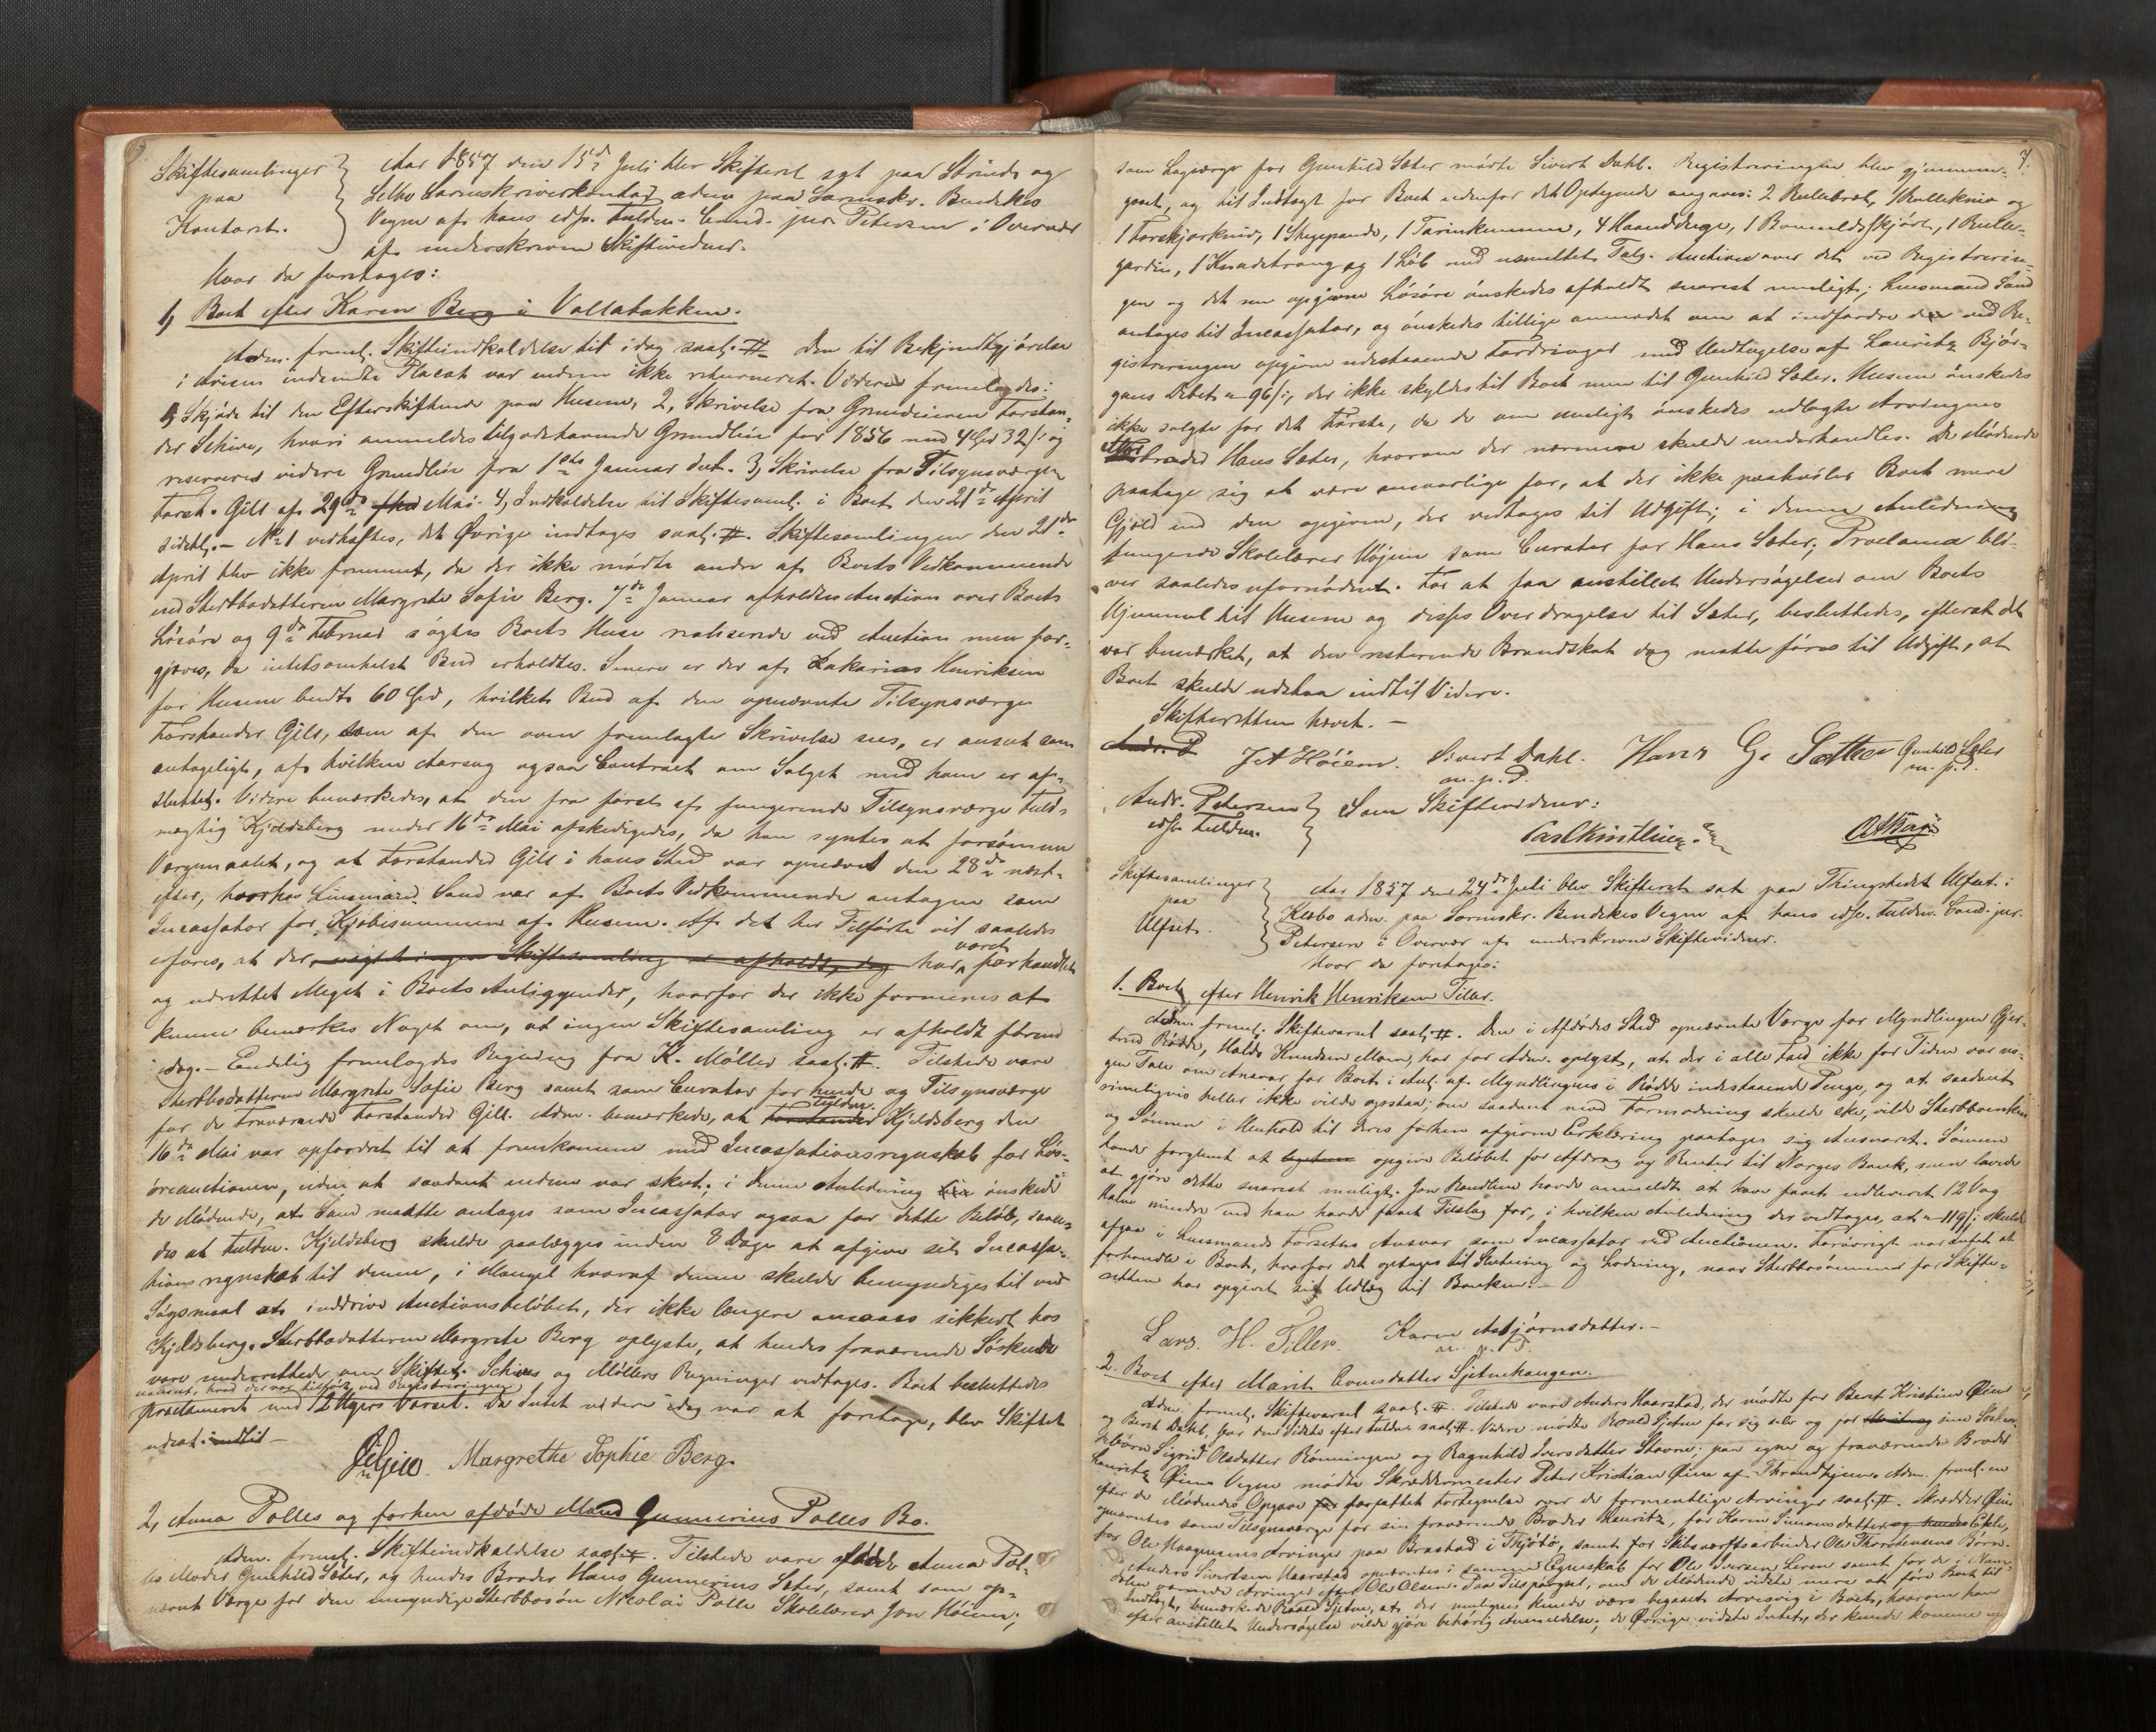 Skiftesamlinger
paa
Kontoret.
Aar 1857 den 15d Juli blev Skifteret sat paa Strinde og
Selbo Sorenskriverkontor adm. paa Sorenskr. Bendekes
Vegne af hans edsv. Fuldm. Cand. jur. Petersen i Overvær
af underskrevne Skiftevidner.
Hvor da foretoges:
1, Boet efter Karen Berg i Vollabakken.
Adm. freml. Skifteindkaldelse til idag saal. #. Den til Bekjendtgjørelse
i Avisen indsendte Placat var endnu ikke returneret. Videre fremlagdes:
1, Skjøde til den Efterskiftende paa Husene, 2, Skrivelse fra Grundeieren Forstan-
der Schive, hvori anmeldes tilgodehavende Grundleie for 1856 med 4 Spd 32 s og
reserveres videre Grundleie fra 1ste Januar d.A. 3, Skrivelse fra Tilsynsværgen
Forst. Gill af 29de Mai. 4, Indkaldelse til Skiftesaml. i Boet den 21de April
sidstl. - No 1 vedhæftes, det Øvrige indtages saal. #. Skiftesamlingen den 21de
April blev ikke fremmet, da der ikke mødte andre af Boets Vedkommende
end Sterbbodatteren Margrete Sofie Berg. 7de Januar afholdtes Auction over Boets
Løsøre og 9de Februar søgtes Boets Huse realiserede ved Auction men for-
gjæves, da intetsomhelst Bud erholdtes. Senere er der af Zakarias Henriksen
for Husene budt 60 Spd, hvilket Bud af den opnævnte Tilsynsværge
Forstander Gill, som af den oven fremlagte Skrivelse sees, er anseet som
antageligt, af hvilken Aarsag ogsaa Contract om Salget med ham er af-
sluttet. Videre bemærkedes, at den fra først af fungerende Tilsynsværge Fuld-
mægtig Kjeldsberg under 16de Mai afskedigedes, da han syntes at forsømme
Værgemaalet, og at Forstander Gill i hans Sted var opnævnt den 28de næst-
efter, hvorhos Lensmand Sand var af Boets Vedkommende antagen som
Incassator for Kjøbesummen af Husene. Af det her Tilførte vil saaledes
erfares, at der vistnok ingen Skiftesamling er afholdt, dog har været forhandlet
og udrettet Meget i Boets Anliggender, hvorfor der ikke formenes at
kunne bemærkes Noget om, at ingen Skiftesamling er afholdt førend
idag. - Endelig fremlagdes Regning fra K. Møller saal. #. Tilstede vare
Sterbbodatteren Margrete Sofie Berg samt som Curator for hende og Tilsynsværge
for de Fraværende Forstander Gill. Adm. bemærkede, at Forstander Fuldm. Kjeldsberg den
16de Mai var opfordret til at fremkomme med Incassationsregnskab for Løs-
øreauctionen, uden at saadant endnu var skeet; i denne Anledning ønskede
de Mødende, at Sand maatte antages som Incassator ogsaa for dette Beløb, saa-
des at Fuldm. Kjeldsberg skulde paalægges inden 8 Dage at afgive sit Incassa-
tionsregnskab til denne, i Mangel hvoraf denne skulde bemyndiges til ved
Søgsmaal at inddrive Auctionsbeløbet, der ikke længere ansaaes sikkert hos
Kjeldsberg. Sterbbodatteren Margrete Berg oplyste, at hendes fraværende Søskende
vare underrettede om Skiftet. Schives og Møllers Regninger vedtages. Boet besluttedes
uanseet, hvad der var tilført ved Registreringen
proclameret med 12 Ugers Varsel. Da Intet videre idag var at foretage, blev Skiftet
udsat indtil -
Gill. Margrethe Sophie Berg.
2, Anna Polles og forhen afdøde Mand Gunnerius Polles Bo.
Adm. freml. Skifteindkaldelse saal. #. Tilstede vare afdøde Anna Pol-
les Moder Gunhild Sæter, og hendes Broder Hans Gunnerius Sæter, samt som op-
nævnt Værge for den umyndige Sterbbosøn Nicolai Polle Skolelærer Jon Høiem;
7.
som Lagværge for Gunhild Sæter mødte Sivert Dahl. Registreringen blev gjennem-
gaaet, og til Indtægt for Boet udenfor det Optegnede angaves: 2 Rullebræt, 1 Rullekniv og
1 Forskjærkniv, 1 Stegepande, 1 Terinkumme, 4 Haandduge, 1 Bomuldsskjørt, 1 Rulle-
gardin, 1 Knadetraug og 1 Løb med usmeltet Talg. Auction over det ved Registrerin-
gen og det nu opgivne Løsøre ønskedes afholdt snarest muligt; Lensmand Sand
antages til Incassator, og ønskedes tillige anmodet om at indfordre de ved Re-
gistreringen opgivne udestaaende Fordringer med Undtagelse af Lauritz Bjør-
gans Debet - 96 s, der ikke skyldes til Boet men til Gunhild Sæter. Husene ønskedes
ikke solgte for det Første, da de om muligt ønskedes udlagte Arvingens
Morbroder Hans Sæter, hvorom der nærmere skulde underhandles. De Mødende
paatage sig at være ansvarlige for, at der ikke paahviler Boet mere
Gjæld end den opgivne, der vedtages til Udgift; i denne Anledning
fungerede Skolelærer Høiem som Curator for Hans Sæter; Proclama bli-
ver saaledes ufornødent. For at faa anstillet Undersøgelser om Boets
Hjemmel til Husene og disses Overdragelse til Sæter, besluttedes, efterat det
var bemærket, at den resterende Brandskat dog maatte føres til Udgift, at
Boet skulde udstaa indtil Videre.
Skifteretten hævet. -
Andr. P J A Höiem. Sivert Dahl. Hans G. Sæther Gunhild Sæter
m. p. P. m. p. P.
Andr. Petersen
edsv. Fuldm.
Som Skiftevidner:
Skiftesamlinger
paa
Ulfset.
Aar 1857 den 24de Juli blev Skifteret sat paa Thingstedet Ulfset i
Klæbo adm. paa Sorenskr. Bendekes Vegne af hans edsv. Fuldm. Cand. jur.
Petersen i Overvær af underskrevne Skiftevidner.
Hvor da foretoges:
1. Boet efter Henrik Henriksen Tiller.
Adm. freml. Skiftevarsel saal. #. Den i Afdødes Sted opnævnte Værge for Myndlingen Gjer-
trud Rødde, Haldo Knudsen Moen, har for Adm. oplyst, at der i alle Fald ikke for Tiden var no-
gen Tale om Ansvar for Boet i Anl. af Myndlingens i Rødde indestaaende Penge, og at saadant
rimeligvis heller ikke vilde opstaa; om saadant mod Formodning skulde ske, vilde Sterbboenken
og Sønnen i Henhold til deres forhen afgivne Erklæring paatage sig Ansvaret. Sønnen
havde forglemt at opgive Beløbet for Afdrag og Renter til Norges Bank, men lovede
at gjøre dette snarest muligt. Jon Randlien havde anmeldt at have faaet udleveret 12 Vog
Halm mindre end han havde faaet Tilslag for, i hvilken Anledning der vedtages, at - 119 s skulde
afgaa i Lensmands Forseths Ansvar som Incassator ved Auctionen. Forøvrigt var Intet at
forhandle i Boet, hvorfor det optages til Slutning og Lodning, naar Sterbbosønnen for Skifte-
retten har opgivet sit Udlæg til Banken. -
Lars. H. Tiller. Karen Asbjørnsdatter. -
m. p. P.
2. Boet efter Marit Arnesdatter Sjetnehaugen.
Adm. freml. Skiftevarsel saal. #. Tilstede vare Anders Haarstad, der mødte for Beret Kristine Øien
og Beret Dahl, for den Sidste efter Fuldm. saal. #. Videre mødte Roald Sjetne for sig selv og for sine Søsken-
debørn Sigrid Olsdatter Rønningen og Ragnhild Iversdatter Stavne; paa egne og fraværende Broder
Lauritz Øiens Vegne mødte Skræddermester Peter Kristian Øien af Throndhjem. Adm. freml. en
efter de Mødendes Opgave forfattet Fortegnelse over de formentlige Arvinger saal. #. Skrædder Øien
opnævntes som Tilsynsværge for sin fraværende Broder Lauritz, for Karen Simonsdatter og hendes Ekte,
for Ole Haagensens Arvinger paa Brastad i Tjøtø, samt for Skibsværftsarbeider Ole Thorstensens Børn.
Anders Sivertsen Haarstad opnævntes i samme Egenskab for Ole Iversen Leren samt for de i Nam-
dalen værende Arvinger efter Ole Olsen. Paa Tilspørgsel, om de Mødende vidste mere at føre Boet til
Indtægt, bemærkede Roald Sjetne, at der muligens kunde være begaaet Arvesvig i Boet, hvorom han
efter anstillet Undersøgelse vilde gjøre behørig Anmeldelse; de Øvrige vidste Intet, der kunde komme